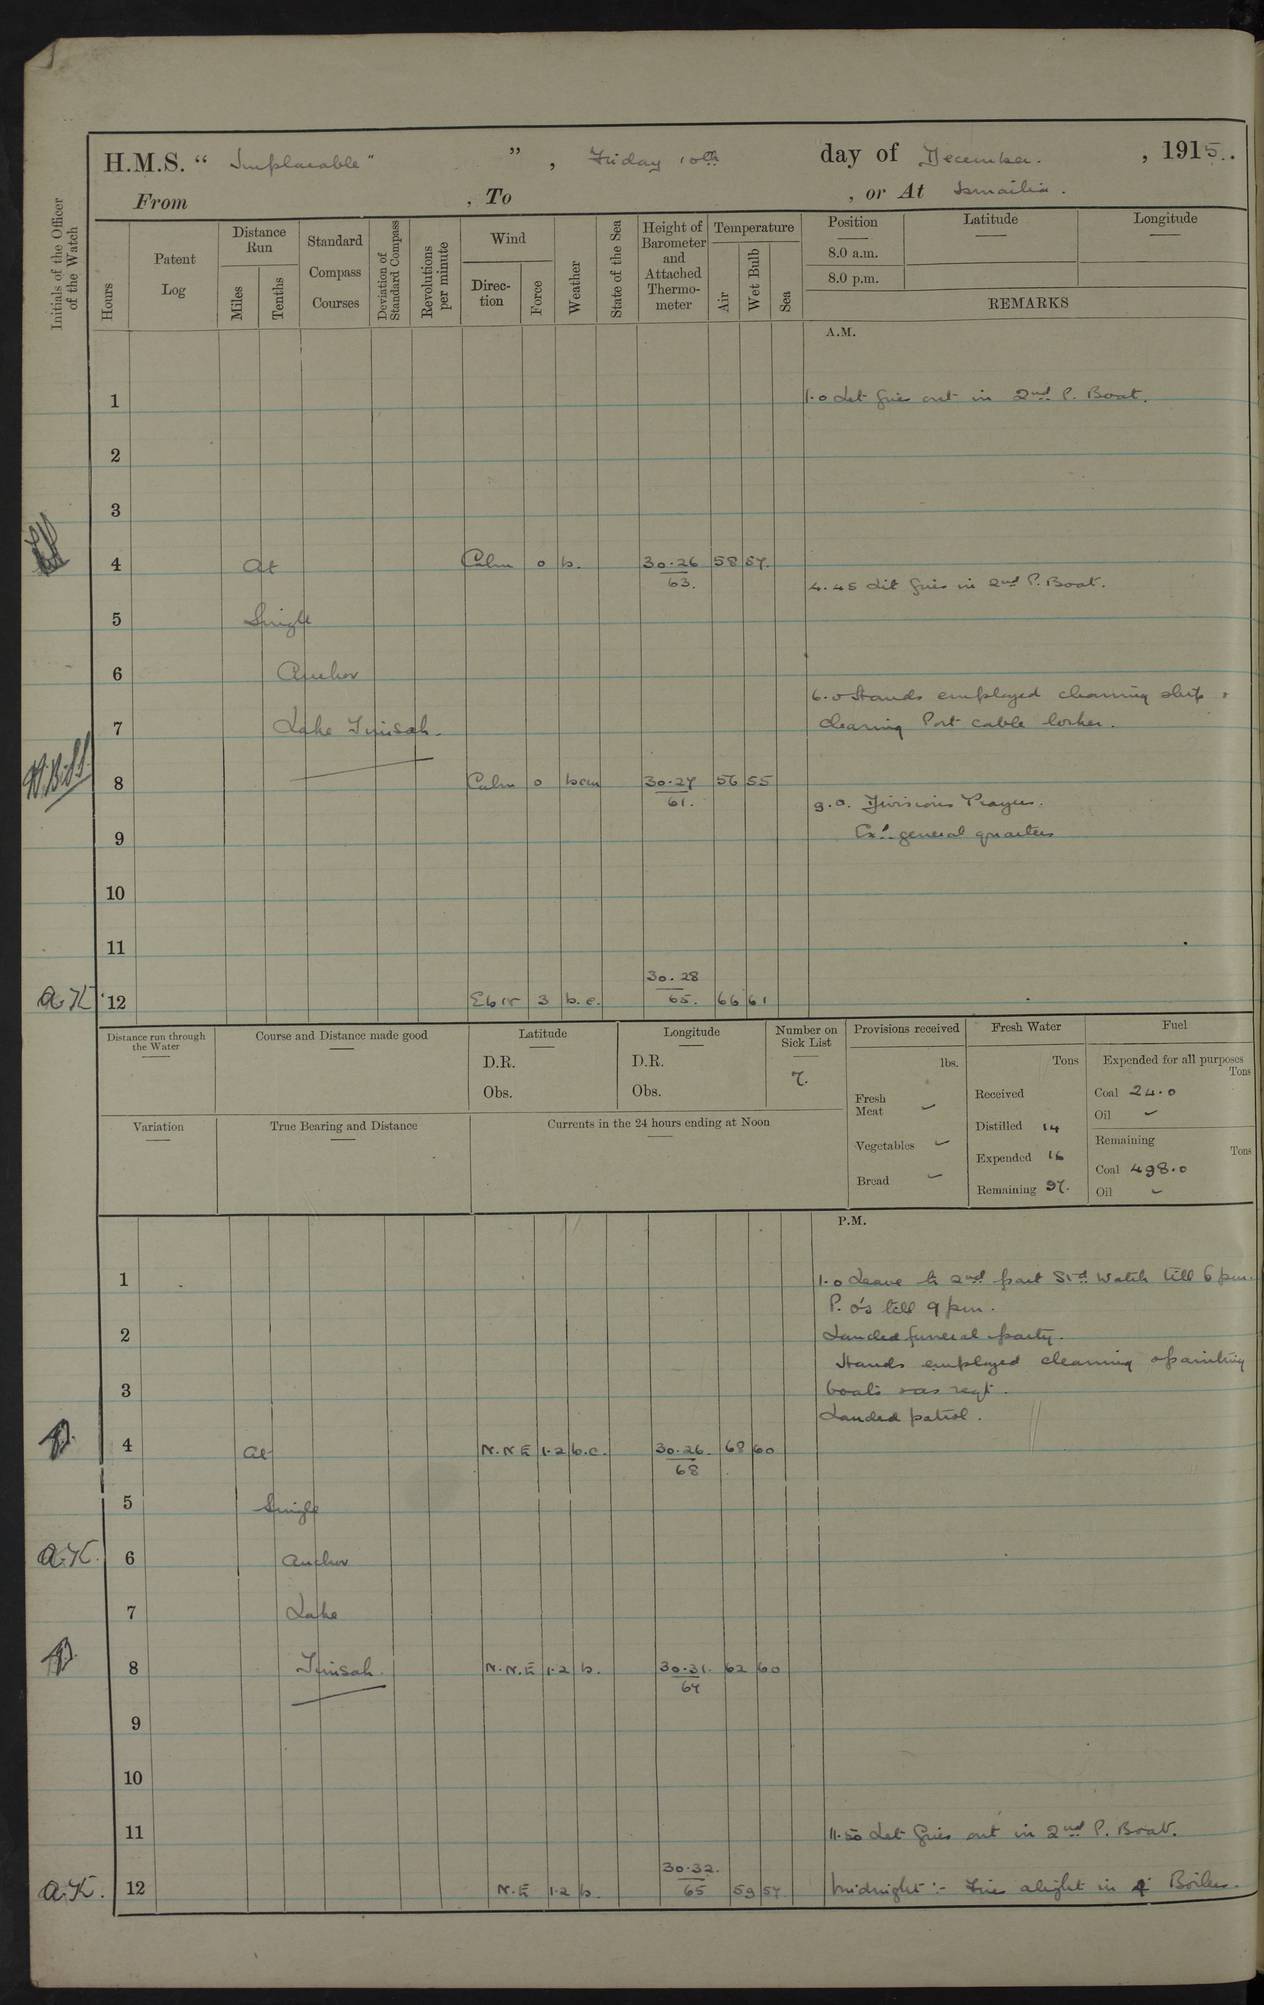 H.M.S. " Implacable " " , Friday 10th day of December. , 1915.
From , To , or At Ismailia .
Initials of the Officer of the Watch
Hours
Patent Log
Distance Run
Miles
Tenths
Standard Compass Courses
Deviation of Standard Compass
Revolutions per minute
Wind
Direc-tion
Force
Weather
State of the Sea
Height of Barometer and Attached Thermo-meter
Temperature
Air
Wet Bulb
Sea
Position
8.0 a.m.
8.0 p.m.
Latitude
Longitude
REMARKS
A.M.
1 1.0 Let fires out in 2nd P. Boat.
2
3
4 At Calm 0 b. 30.26 58 57.
63.
4.45 Lit fires in 2nd P. Boat.
5 Single
6 Anchor
6.0 Hands employed cleaning ship &
7 Lake Timsah. clearing Port cable locker.
8 Calm 0 bcm 30.27 56 55
61.
9.0. Divisions Prayers.
9 Ex. general quarters
10
11
30.28
A.K. 12 EbN 3 b.c. 65. 66 61
Distance run through the Water
Course and Distance made good
Latitude
D.R.
Obs.
Longitude
D.R.
Obs.
Number on Sick List
7.
Provisions received
lbs.
Fresh Meat –
Vegetables –
Bread –
Fresh Water
Tons
Received
Distilled 14
Expended 16
Remaining 97.
Fuel
Expended for all purposes
Tons
Coal 24.0
Oil –
Remaining
Tons
Coal 498.0
Oil –
Variation
True Bearing and Distance
Currents in the 24 hours ending at Noon
P.M.
1 1.0 Leave to 2nd part Std Watch till 6 pm.
P.O's till 9 pm.
2 Landed funeral party.
Hands employed cleaning & painting
3 boats & as reqt.
Landed patrol.
4 At N.N.E 1.2 b.c. 30.26. 68 60
68
5 Single
A.K. 6 Anchor
7 Lake
8 Timsah. N.N.E 1.2 b. 30.31. 62 60
67
9
10
11 11.50 Let fires out in 2nd P. Boat.
30.32.
A.K. 12 N.E 1.2 b. 65 59 57 Midnight :- Fires alight in 4 Boilers.